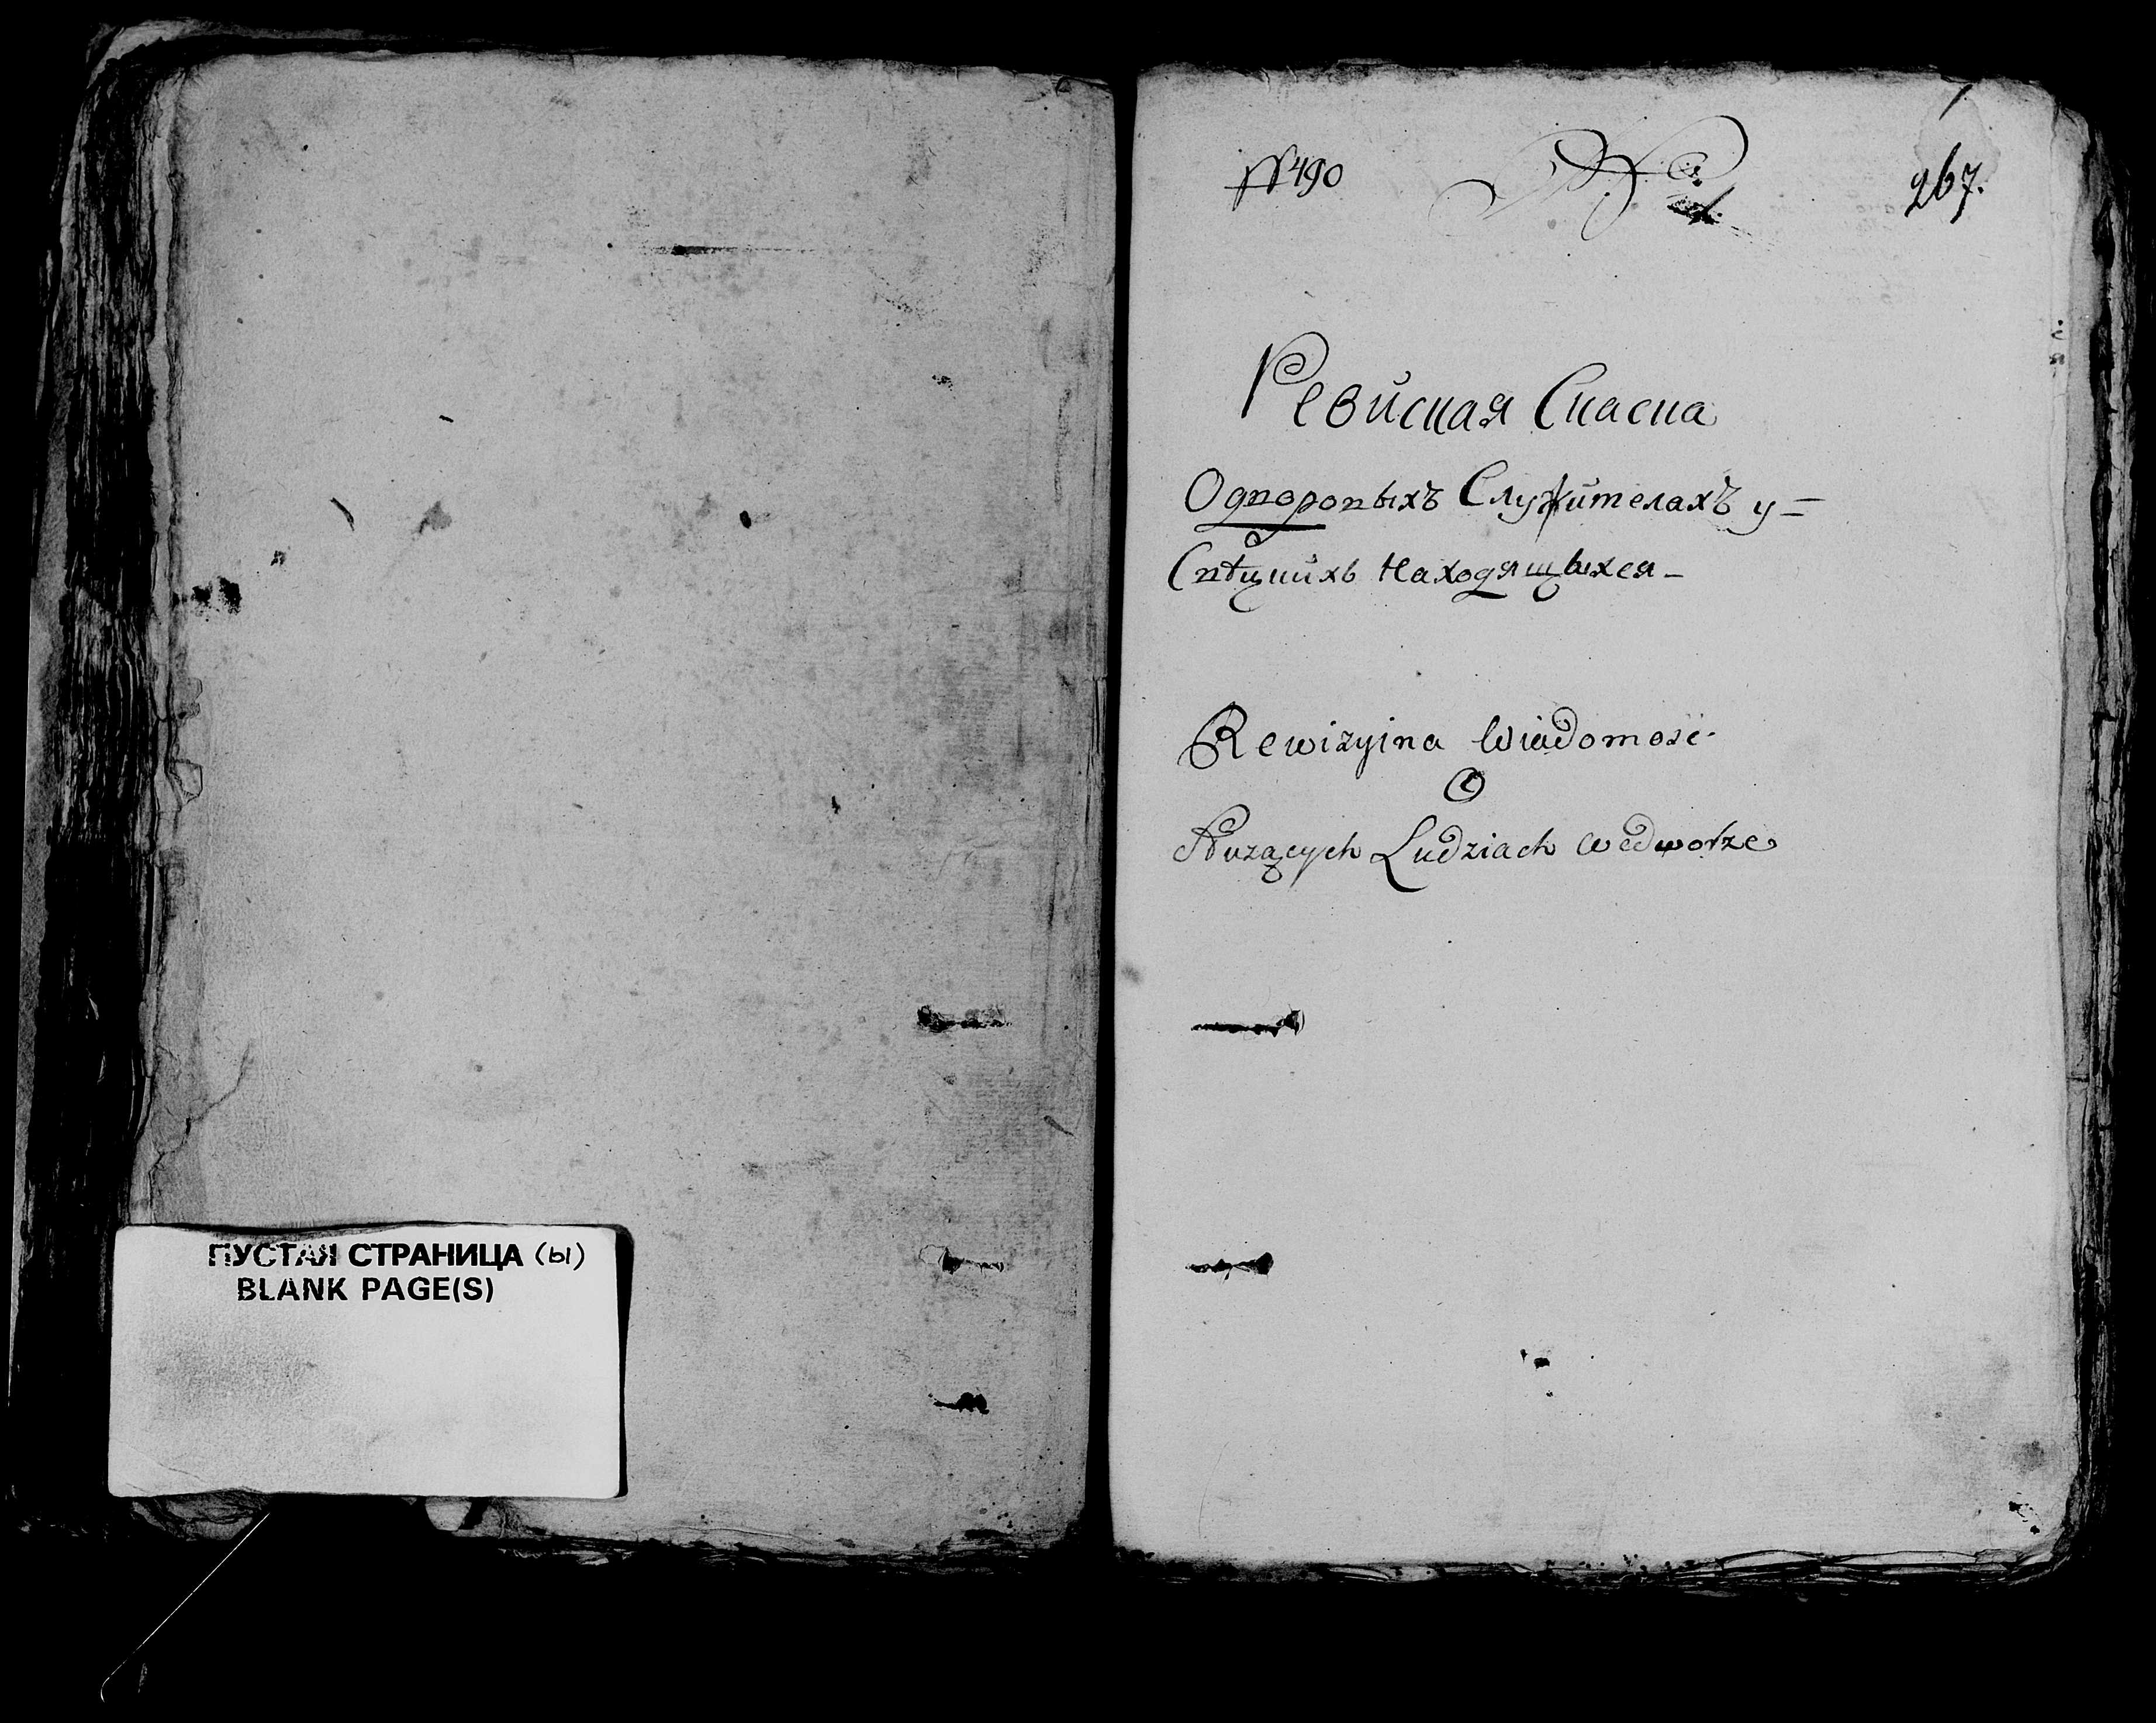 ПУСТАЯ СТРАНИЦА (ы)
BLANK PAGE(S)
№ 490
267.
Ревиская Скаска
Одворовыхъ Служителахъ у=
Находящыхся-
Rewizyina Wiadomość
O
Służących Ludziach we dworze